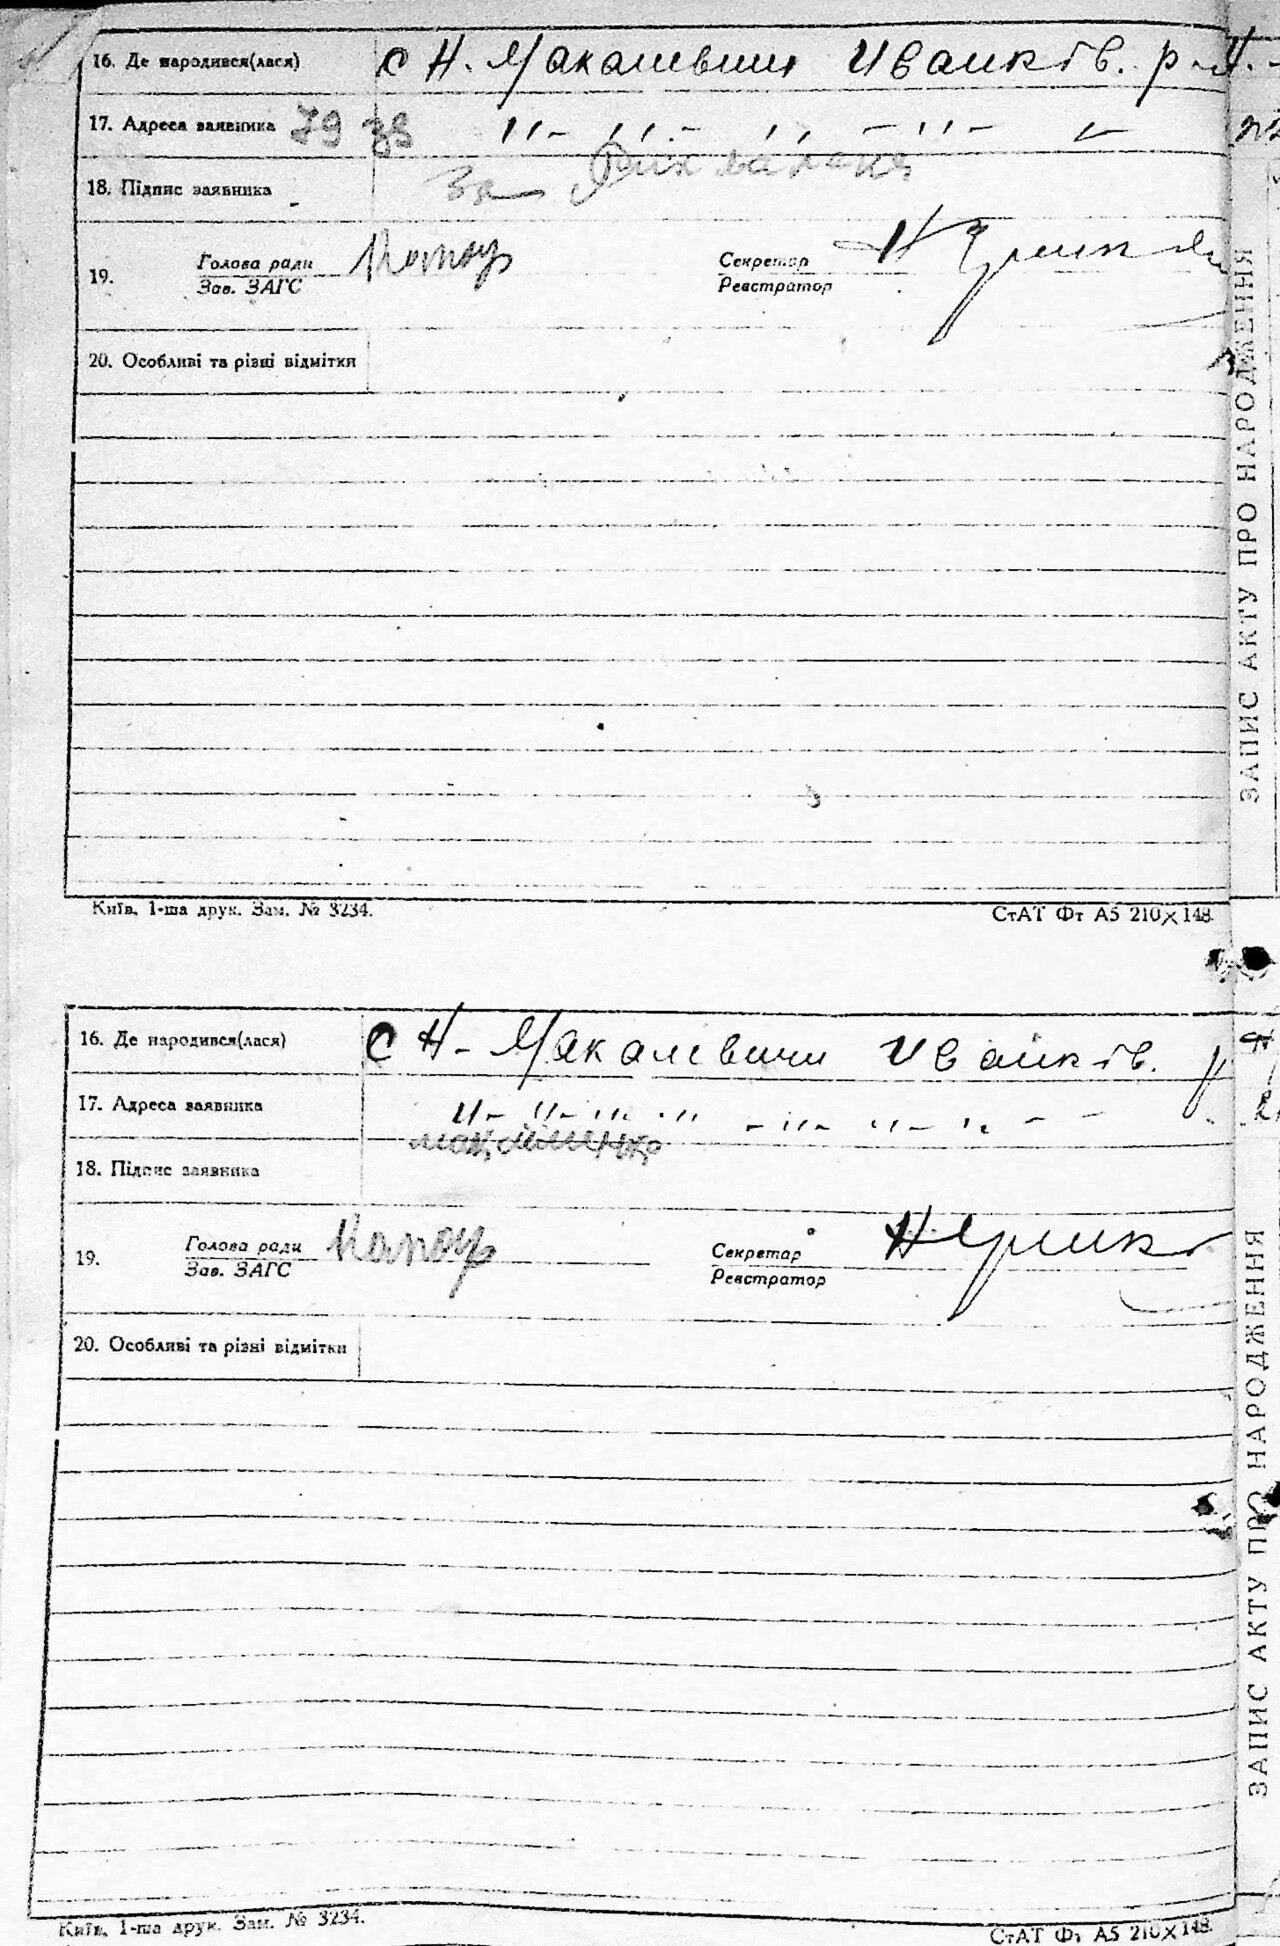 16. Де народився(лася) с Н. Макалевичи Иванків. р-н.
17. Адреса заявника 79 зв -"- -"- -"- -"-
18. Підпис заявника За
19. Голова ради Секретар
Зав. ЗАГС Реєстратор
20. Особливі та різні відмітки
Київ, 1-ша друк. Зам. № 3234. СтАТ Фт А5 210×148.
ЗАПИС АКТУ ПРО НАРОДЖЕННЯ
16. Де народився(лася) с Н-Макалевичи Иванків. р
17. Адреса заявника -"- -"- -"- -"- -"- -"- -"-
18. Підпис заявника
19. Голова ради Секретар
Зав. ЗАГС Реєстратор
20. Особливі та різні відмітки
Київ, 1-ша друк. Зам. № 3234. СтАТ Фт А5 210×148.
ЗАПИС АКТУ ПРО НАРОДЖЕННЯ